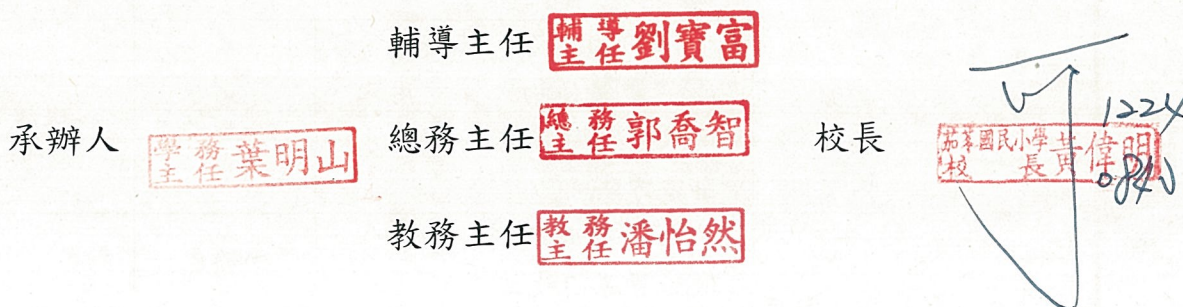 輔導主任 輔導主任劉寶富
承辦人 學務主任葉明山 總務主任 總務主任郭喬智 校長 茄苳國民小學校長黃偉明
可 1224
0840
教務主任 教務主任潘怡然